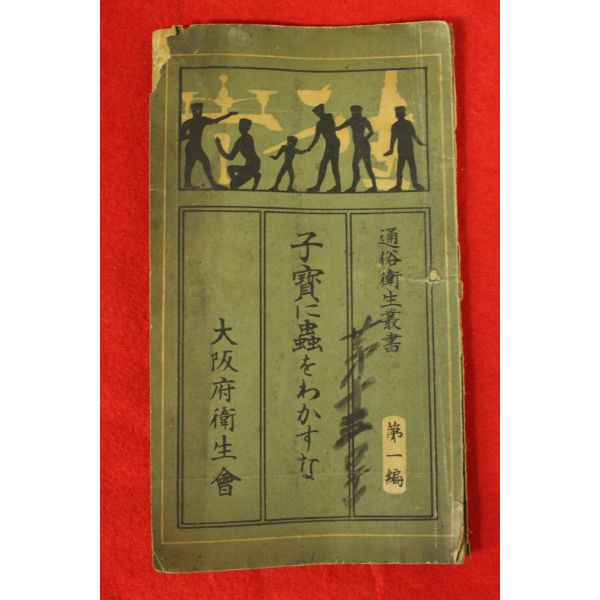 通俗衛生叢書
第一編
子寶に蟲をわかすな
大阪府衛生會